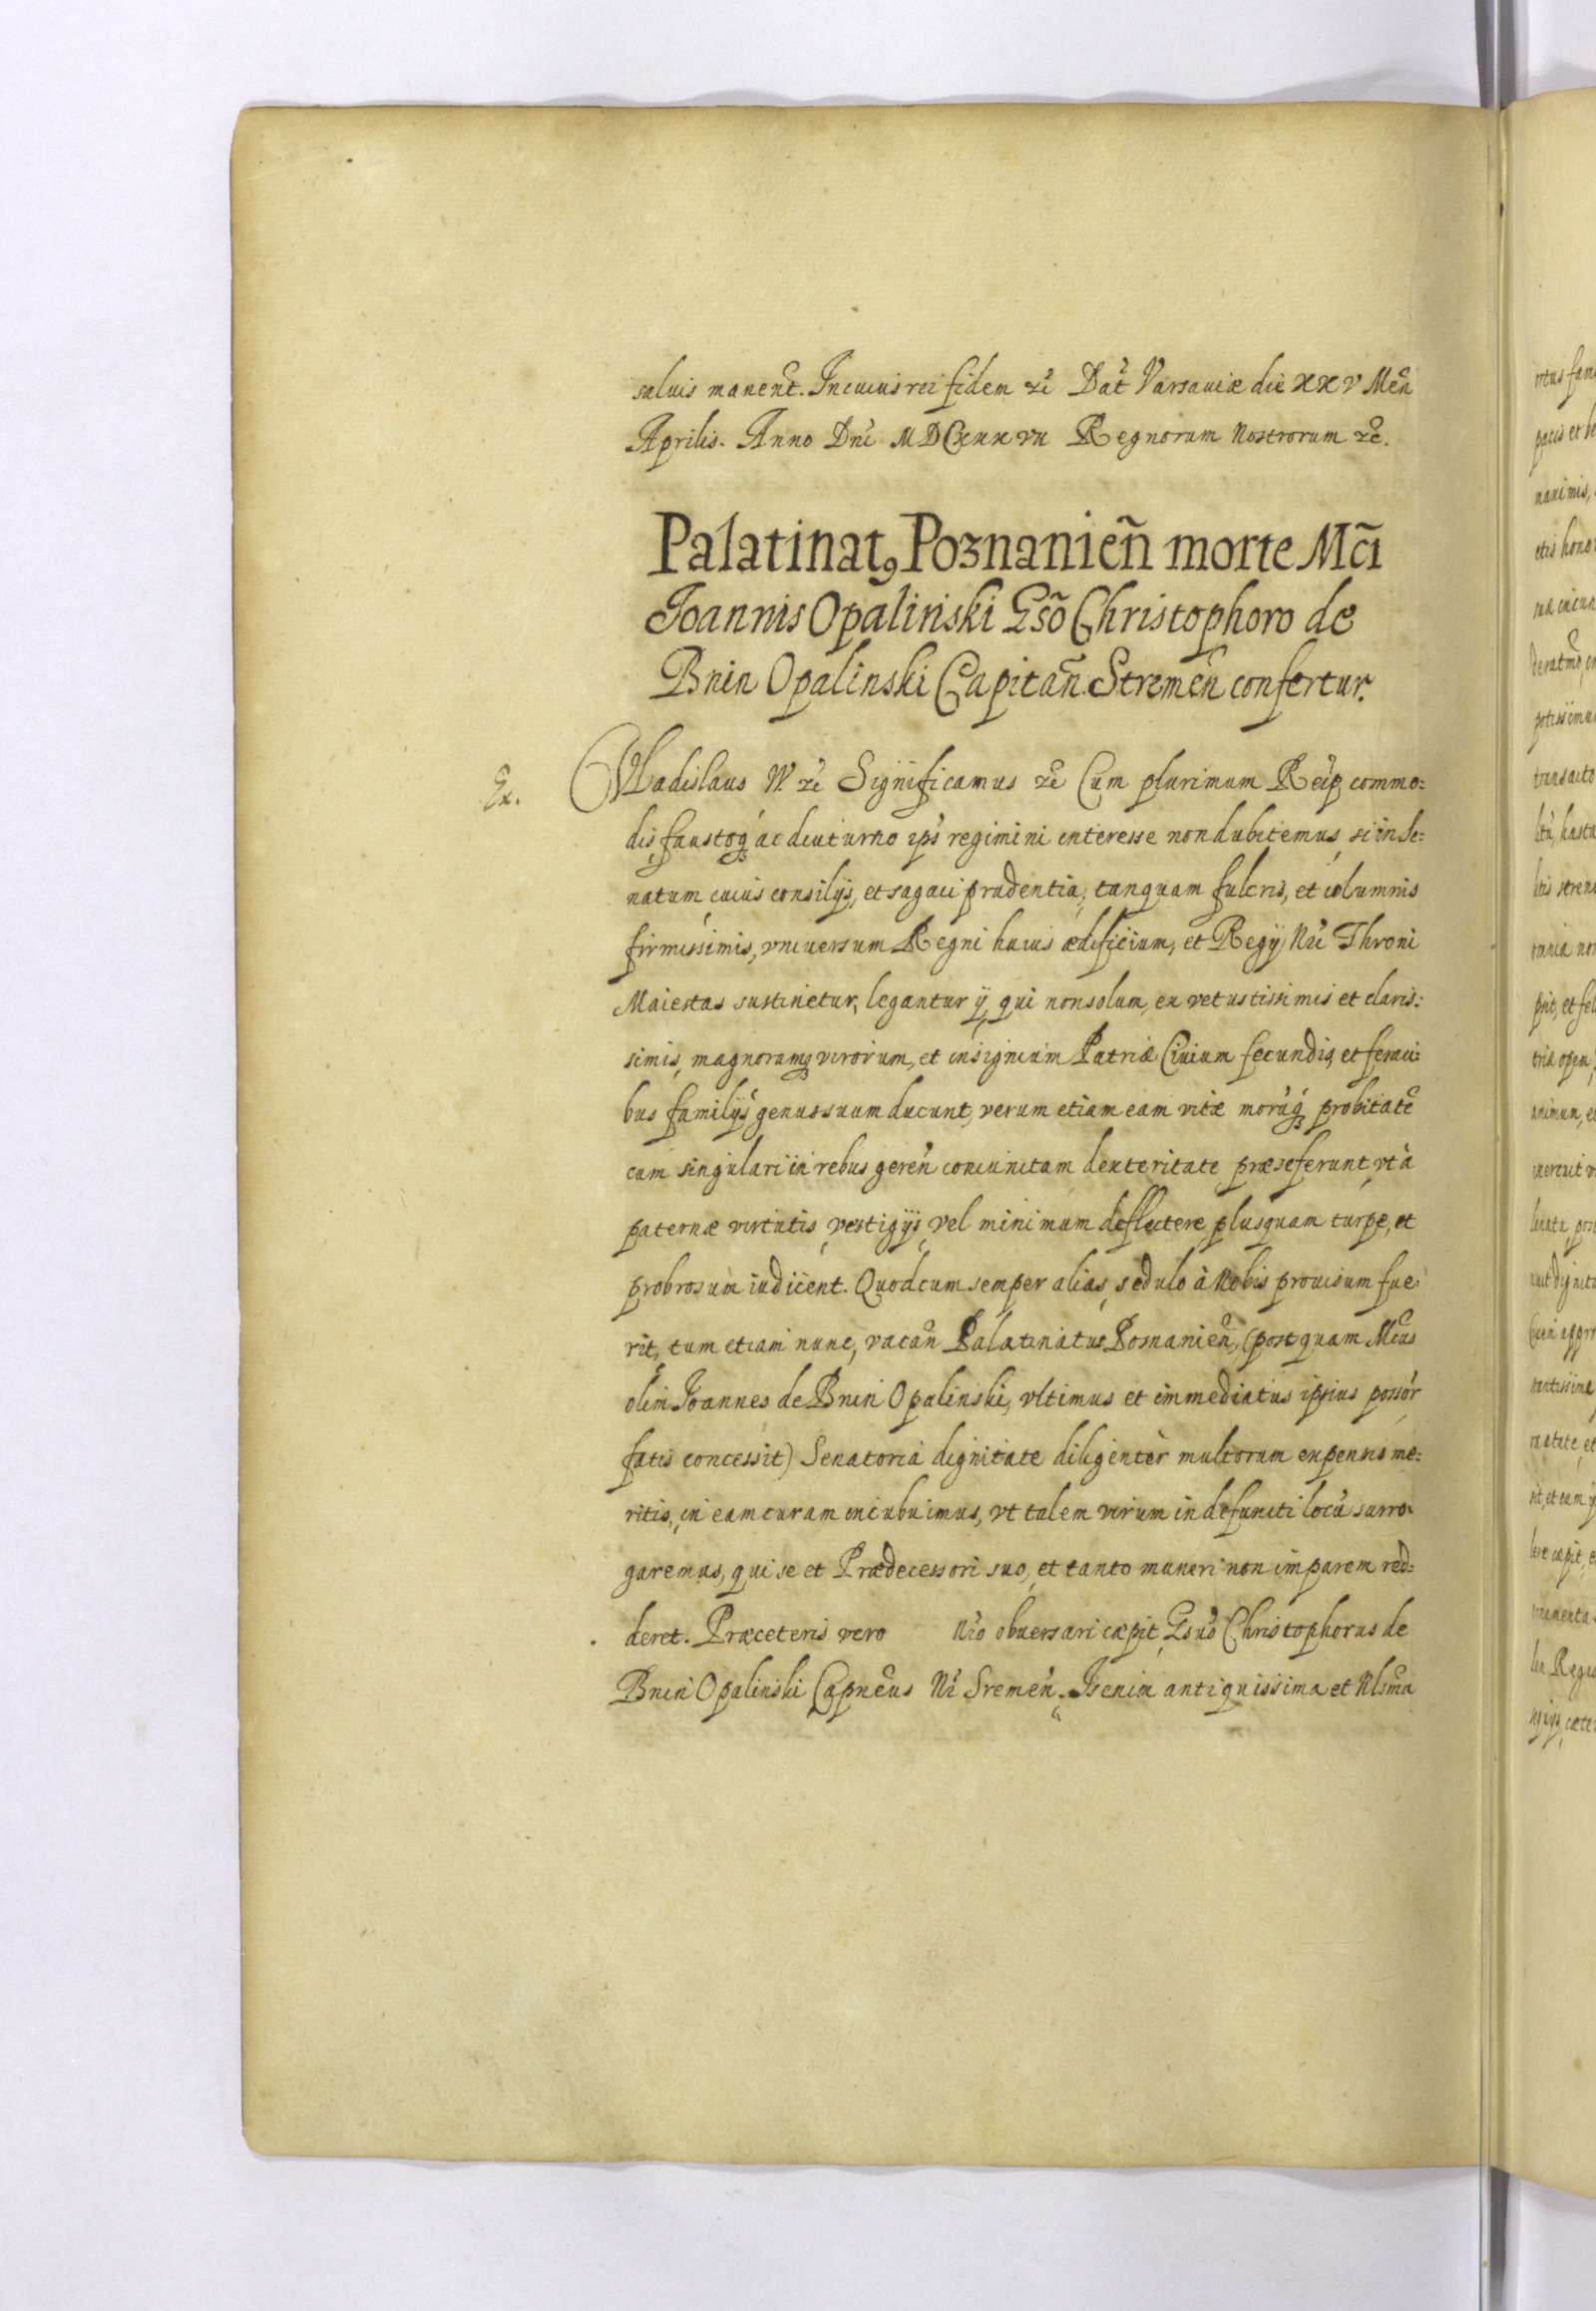 saluis manent̃. In cuius rei fidem etc̃ Dat̃ Varsauiæ die XXV Men̄
Aprilis. Anno Dn̄i MDCXXXVII Regnorum Nostrorum etc̃.
Palatinatꝰ Poznanien̄ morte Mc̄i
Joannis Opalinski Gsō Christophoro de
Bnin Opalinski Capitan̄ Stremen̄ confertur.
Ex. Vladislaus IV. etc̃ Significamus etc̃ Cum plurimum Reip commo:
dis, faustoq́ ac diuturno ips̃ regimini interesse non dubitemus, si in Se:
natum cuius consilijs, et sagaci prudentia, tanquam fulcris, et columnis
firmissimis, vniuersum Regni huius ædificium, et Regij Nr̃i Throni
Maiestas sustinetur, legantur ij qui non solum, ex vetustissimis et claris:
simis, magnorumq́ virorum, et insignium Patriæ Ciuium fecundis, et feraci:
bus familijs genus suum ducunt, verum etiam eam vitæ morũq́ probitatẽ
cum singulari in rebus geren̄ coniunctam dexteritate præ se ferunt, vt à
paternæ virtutis vestigijs vel minimum deflectere plusquam turpe, et
probrosum iudicent. Quod cum semper alias, sedulo à Nobis prouisum fue:
rit, tum etiam nunc, vacan̄ Palatinatus Posnanien̄, (postquam Mc̃us
olim Joannes de Bnin Opalinski, vltimus et immediatus ipsius possor̃
fatis concessit) Senatoria dignitate diligenter multorum expensis me:
ritis, in eam curam incubuimus, vt talem virum in defuncti locũ surro:
garemus, qui se et Prædecessori suo, et tanto muneri non imparem red:
deret. Præ ceteris vero Nr̃o obuersari cæpit Gsũs Christophorus de
Bnin Opalinski Capnẽus Nr̃ Sremen̄. Is enim antiquissima et Nlsm̃a